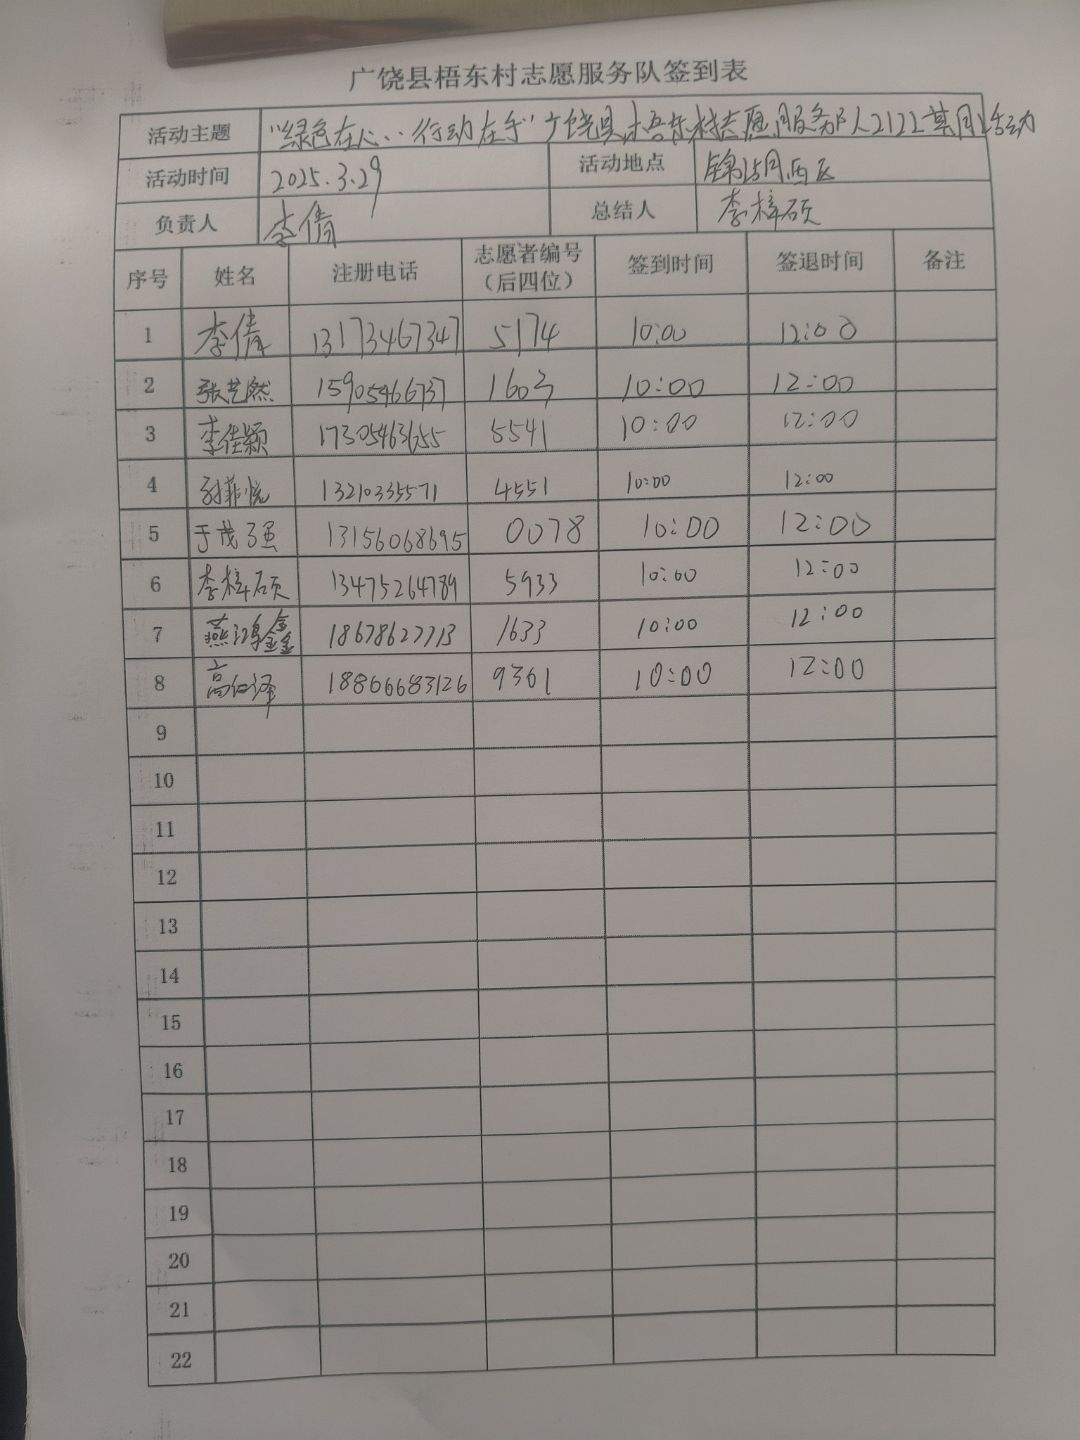 广饶县梧东村志愿服务队签到表
活动主题 "绿色在心,行动在手"广饶县梧东村志愿服务队2122期周活动
活动时间 2025.3.29 活动地点 锦湖西区
负责人 李倩 总结人 李梓硕
序号 姓名 注册电话 志愿者编号（后四位） 签到时间 签退时间 备注
1 李倩 13173467347 5174 10:00 12:00
2 张艺燃 15905466737 1603 10:00 12:00
3 李佳颖 17305463655 5541 10:00 12:00
4 菲悦 13210335571 4551 10:00 12:00
5 于茂强 13156068695 0078 10:00 12:00
6 李梓硕 13475264789 5933 10:00 12:00
7 燕鸿鑫 18678627713 1633 10:00 12:00
8 高泽 18866683126 9361 10:00 12:00
9
10
11
12
13
14
15
16
17
18
19
20
21
22